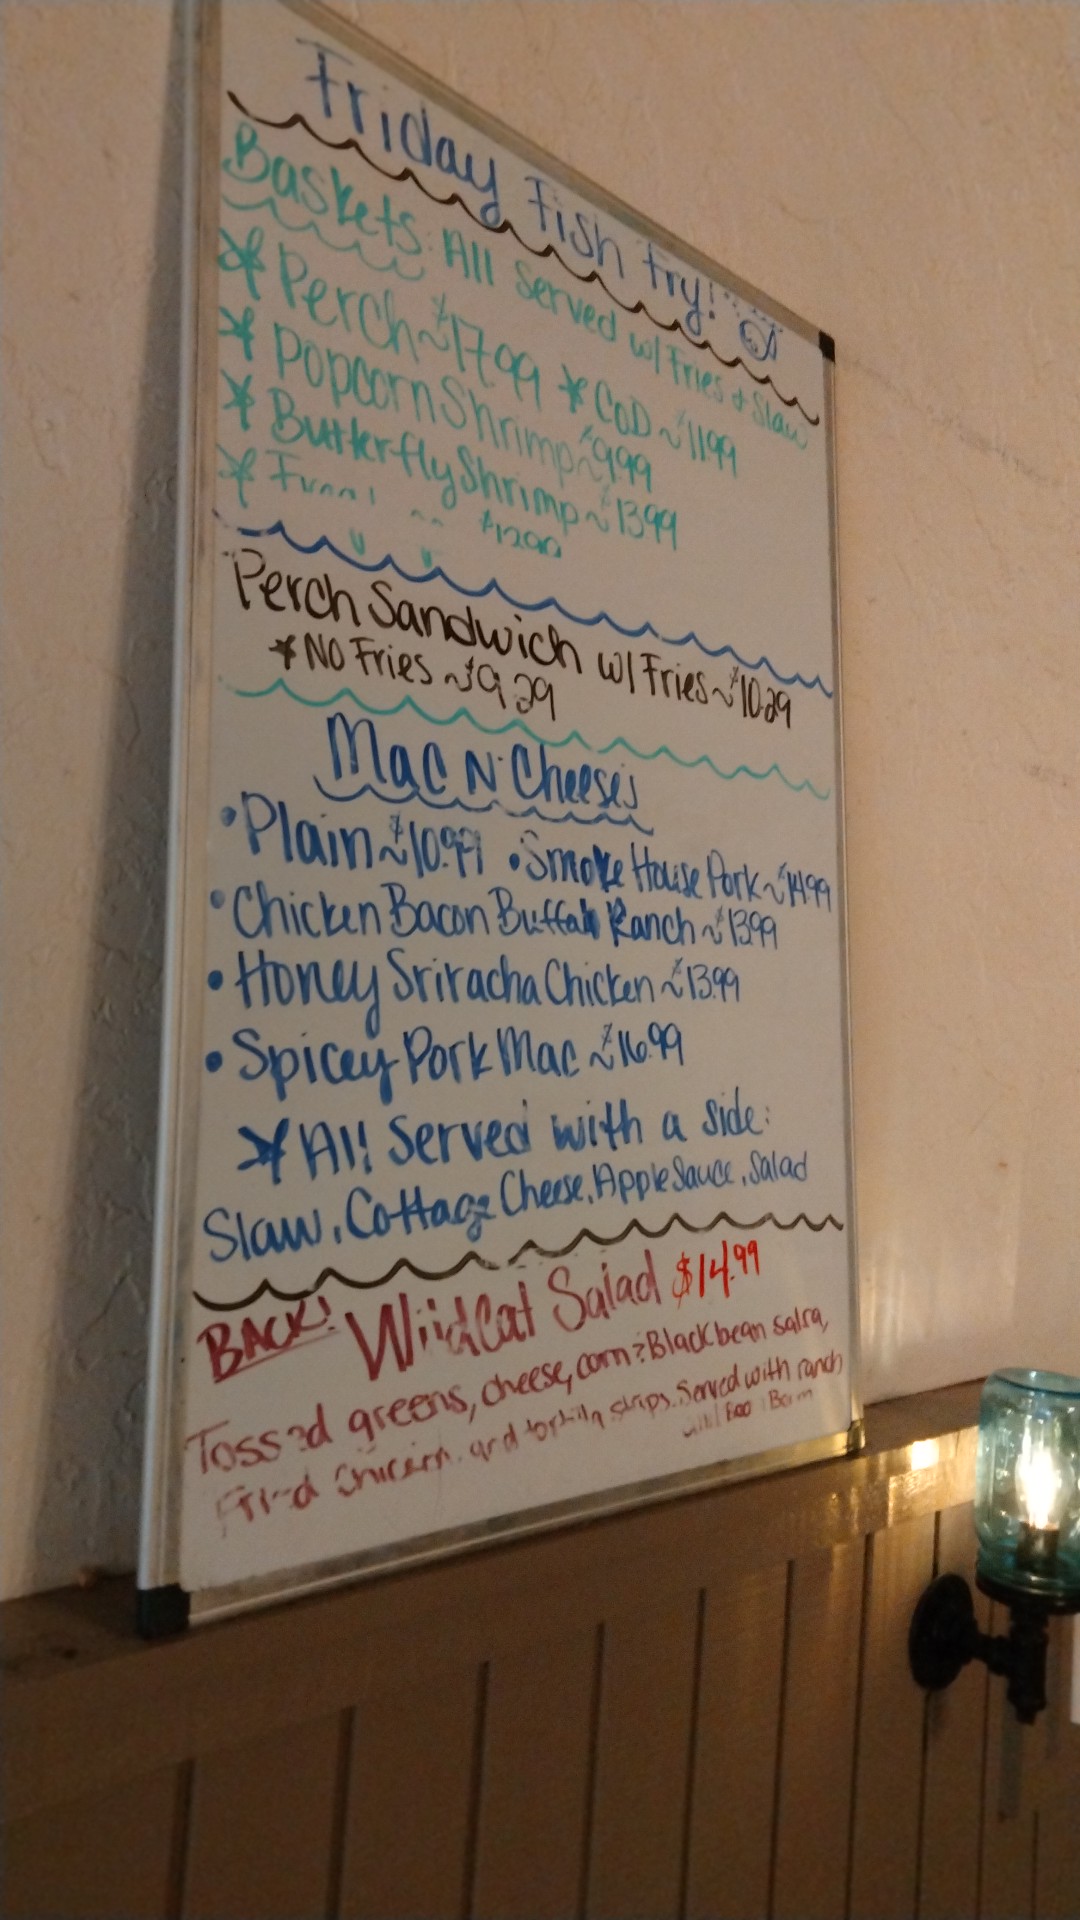 Friday Fish Fry!
Baskets: All Served w/ Fries & Slaw
* Perch ~ $17.99 * COD ~ $11.99
* Popcorn Shrimp ~ $9.99
* Butterfly Shrimp ~ $13.99
* $12.99
Perch Sandwich w/ Fries ~ $10.29
* No Fries ~ $9.29
Mac N' Cheeses
• Plain ~ $10.99 • Smoke House Pork ~ $14.99
• Chicken Bacon Buffalo Ranch ~ $13.99
• Honey Sriracha Chicken ~ $13.99
• Spicey Pork Mac ~ $16.99
* All Served with a side:
Slaw, Cottage Cheese, Apple Sauce, Salad
BACK! Wildcat Salad $14.99
Tossed greens, cheese, corn & Black bean salsa,
Fried chicken, and tortilla strips. Served with ranch